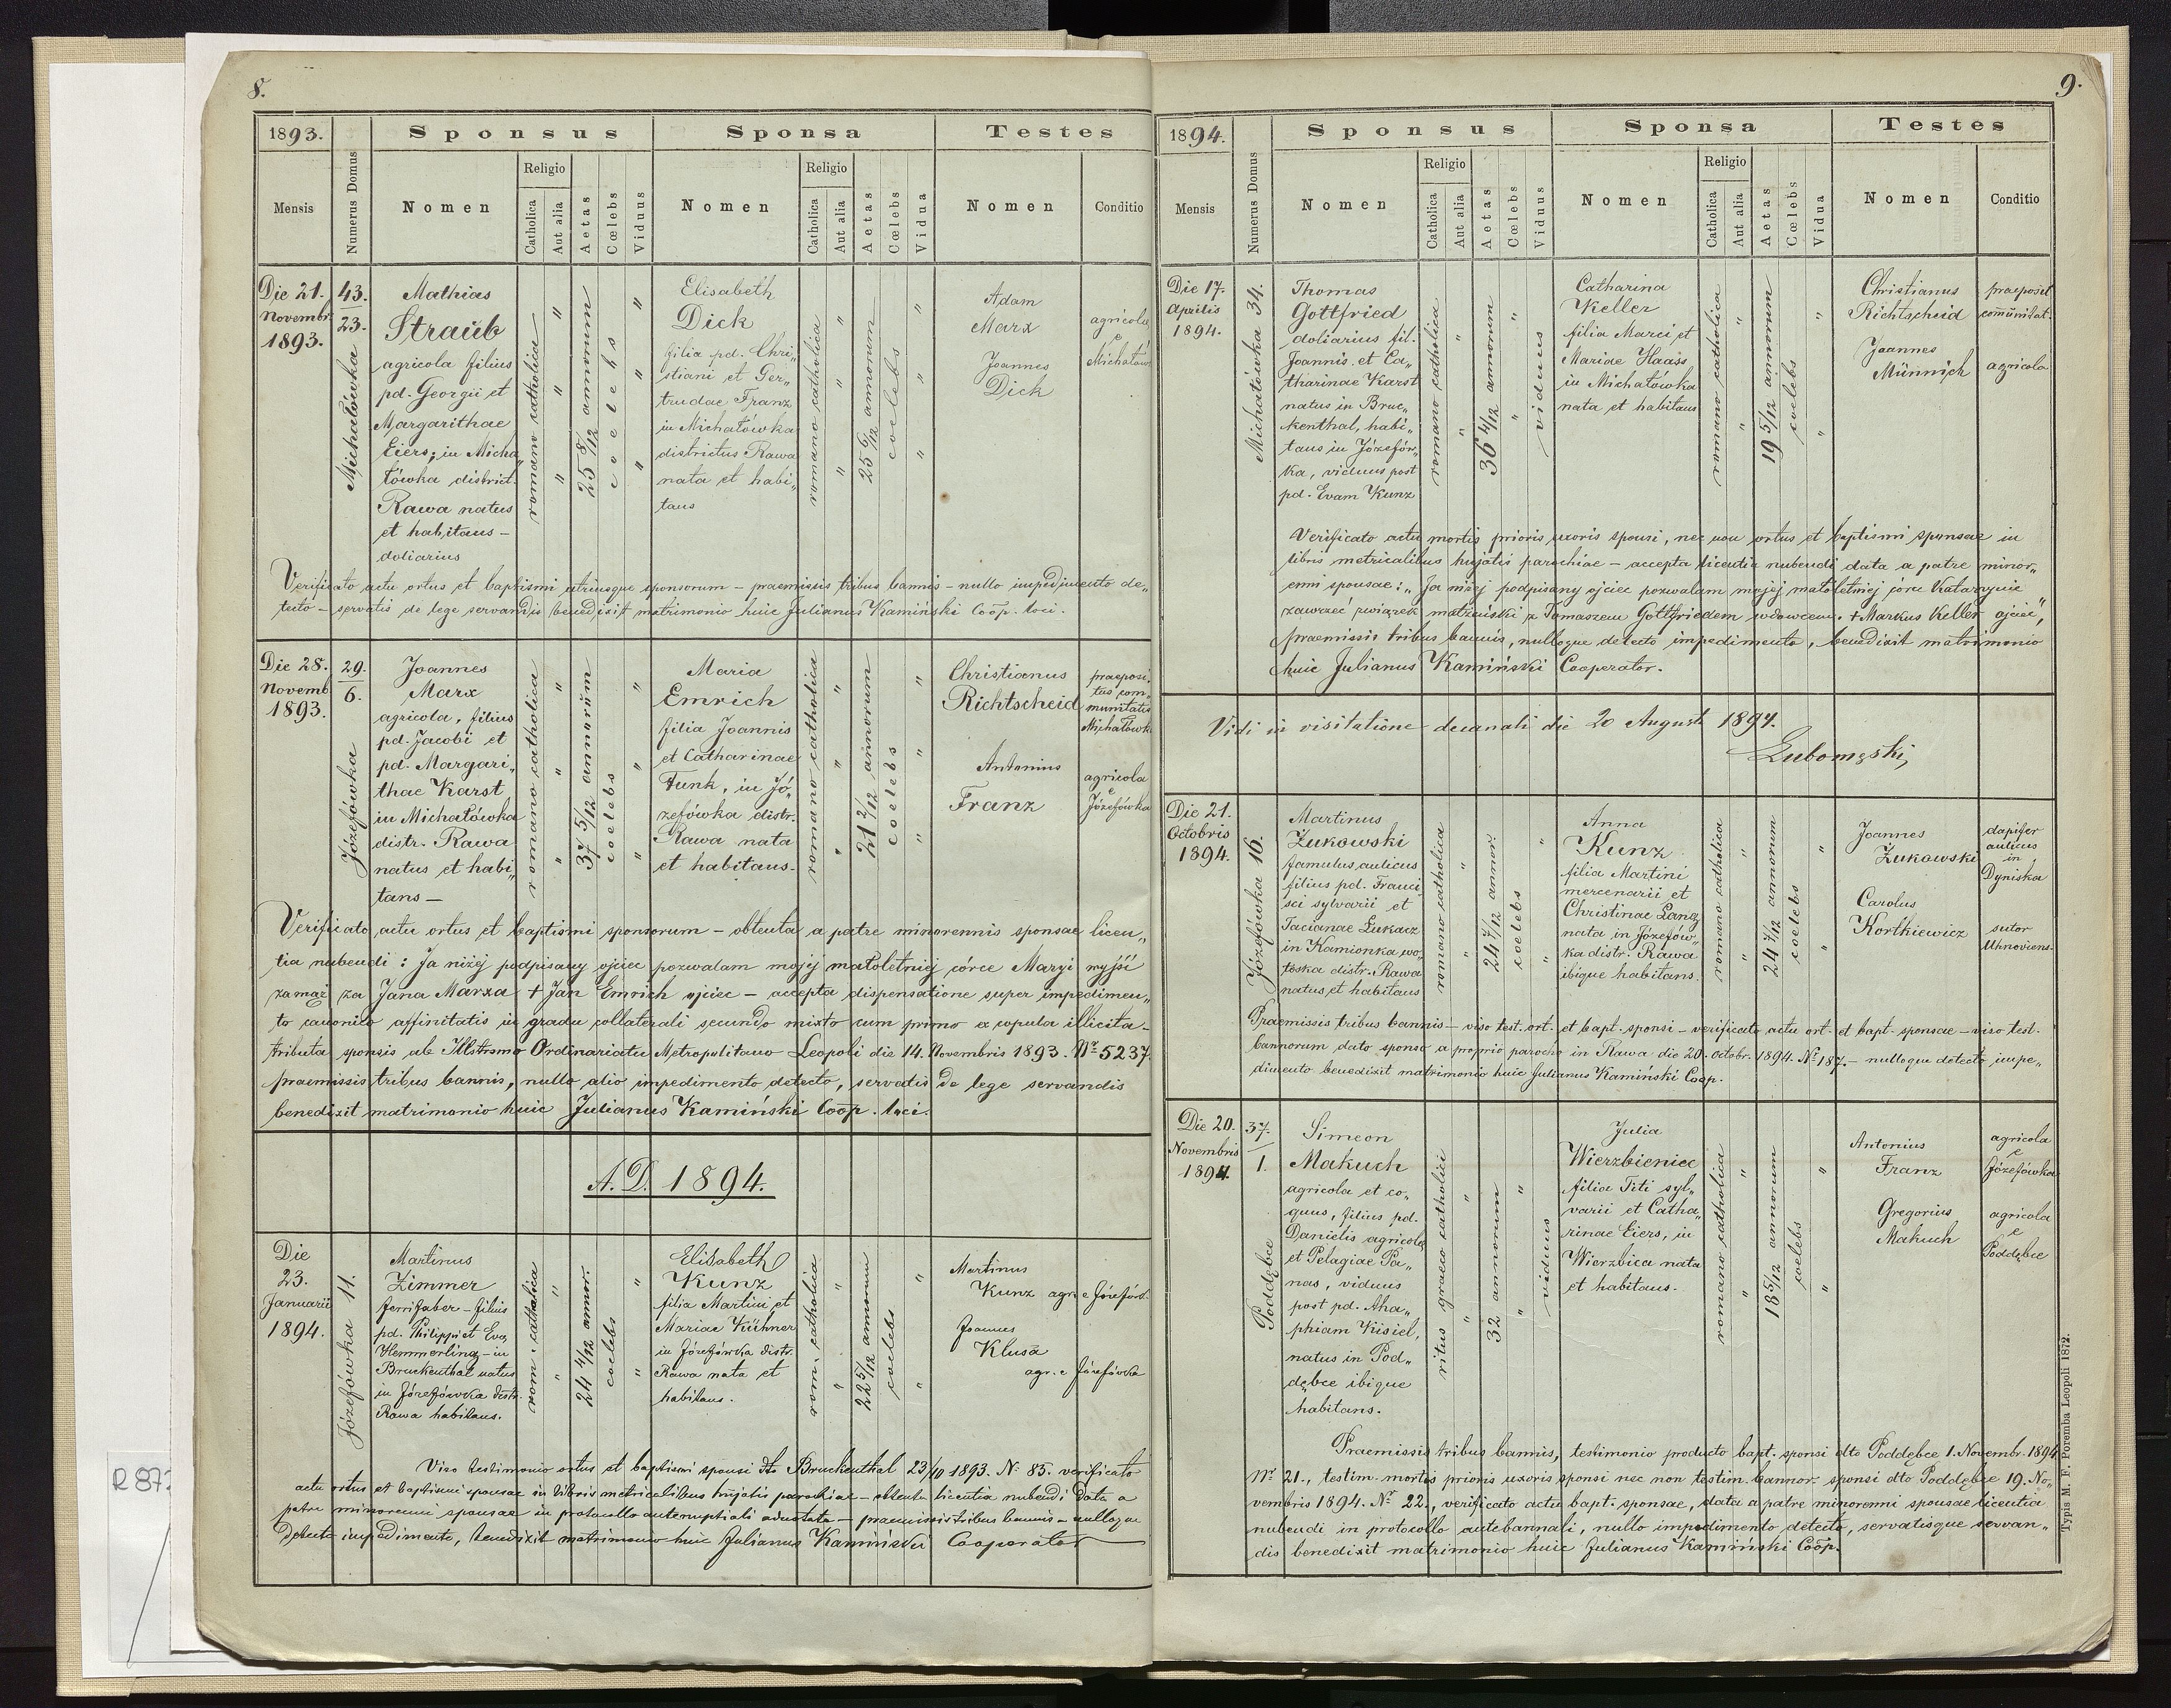 8.
1893.
Sponsus
Sponsa
Testes
Mensis
Numerus Domus
Nomen
Religio
Catholica
Aut alia
Aetas
Cœlebs
Viduus
Nomen
Religio
Catholica
Aut alia
Aetas
Cœlebs
Vidua
Nomen
Conditio
Die 21.
Novembr.
1893.
43.
23.
Michałówka
Mathias
Straub
agricola filius
pd. Georgii et
Margarithae
Eiers; in Micha„
łówka district.
Rawa natus
et habitans –
doliarius
romano catholica
" " "
25 8/12 annorum
coelebs
" " "
Elisabeth
Dick
filia pd. Chri„
stiani et Ger„
trudae Franz
in Michałówka
districtus Rawa
nata et habi„
tans
romano catholica
" " "
25 annorum
coelebs
" " "
Adam
Marx
Joannes
Dick
agricola
e
Michałów
Verificato actu ortus et baptismi utriusque sponsorum – praemissis tribus bannis – nullo impedimento de„
tecto – servatis de lege servandis benedixit matrimonio huic Julianus Kamiński Coop. loci.
Die 28.
Novemb.
1893.
29.
6.
Józefówka
Joannes
Marx
agricola, filius
pd. Jacobi et
pd. Margari„
thae Karst
in Michałówka
distr. Rawa
natus et habi„
tans –
romano catholica
" " "
37 5/12 annorum
coelebs
" " "
Maria
Emrich
filia Joannis
et Catharinae
Funk, in Jó„
zefówka distr.
Rawa nata
et habitans.
romano catholica
" " "
21 2/12 annorum
coelebs
" " "
Christianus
Richtscheid
Antonius
Franz
praeposi„
tus com„
munitatis
Michałówk
agricola
e
Józefówka
Verificato actu ortus et baptismi sponsorum – obtenta a patre minorennis sponsae licen„
tia nubendi: Ja niżej podpisany ojciec pozwalam mojej małoletniej córce Maryi wyjść
zamąż za Jana Marxa + Jan Emrich ojciec – accepta dispensatione super impedimen„
to canonico affinitatis in gradu collaterali secundo mixto cum primo ex copula illicita –
tributa sponsis ab Illstrsmo Ordinariatu Metropolitano Leopoli die 14. Novembris 1893. Nr 5237.
praemissis tribus bannis, nullo alio impedimento detecto, servatis de lege servandis
benedixit matrimonio huic Julianus Kamiński Coop. loci.
A. D. 1894.
Die
23.
Januarii
1894.
Józefówka 11.
Martinus
Zimmer
ferrifaber – filius
pd. Philippi et Evae
Hemmerling – in
Bruckenthal natus
in Józefówka distr.
Rawa habitans.
rom. catholica
" "
24 4/12 annor.
coelebs
" "
Elisabeth
Kunz
filia Martini et
Mariae Kühner
in Józefówka distr.
Rawa nata et
habitans.
rom. catholica
" "
22 5/12 annorum
coelebs
" "
Martinus
Kunz agr. e Józefów.
Joannes
Klusa
agr. e Józefówka
Viso testimonio ortus et baptismi sponsi dto Bruckenthal 23/10 1893. N. 85. verificato
actu ortus et baptismi sponsae in libris metricalibus hujatis parochiae – obtenta licentia nubendi data a
patre minorenni sponsae in protocollo antenuptiali adnotata – praemissis tribus bannis – nulloque
detecto impedimento, benedixit matrimonio huic Julianus Kamiński Cooperator
9.
1894.
Sponsus
Sponsa
Testes
Mensis
Numerus Domus
Nomen
Religio
Catholica
Aut alia
Aetas
Cœlebs
Viduus
Nomen
Religio
Catholica
Aut alia
Aetas
Cœlebs
Vidua
Nomen
Conditio
Die 17.
Aprilis
1894.
Michałówka 34.
Thomas
Gottfried
doliarius fil.
Joannis et Ca„
tharinae Karst
natus in Bruc„
kenthal, habi„
tans in Józefów„
ka, viduus post
pd. Evam Kunz
romano catholica
" "
36 4/12 annorum
" "
viduus
Catharina
Keller
filia Marci et
Mariae Haass
in Michałówka
nata et habitans
romano catholica
" "
19 5/12 annorum
coelebs
" "
Christianus
Richtscheid
Joannes
Münnich
praeposit.
comunitat.
agricola
Verificato actu mortis prioris uxoris sponsi, nec non ortus et baptismi sponsae in
libris metricalibus hujatis parochiae – accepta licentia nubendi data a patre minor„
enni sponsae: „Ja niżej podpisany ojciec pozwalam mojej małoletniej córce Katarzynie
zawrzeć związek małżeński z Tomaszem Gottfriedem wdowcem. + Markus Keller ojciec",
praemissis tribus bannis, nulloque detecto impedimento, benedixit matrimonio
huic Julianus Kamiński Cooperator.
Vidi in visitatione decanali die 20 Augusti 1894.
Die 21.
Octobris
1894.
Józefówka 16.
Martinus
Żukowski
famulus aulicus
filius pd. Franci
sci sylvarii et
Tacianae Łukacz
in Kamionka wo„
łoska distr. Rawa
natus et habitans
romano catholica
" "
24 annor.
coelebs
" "
Anna
Kunz
filia Martini
mercenarii et
Christinae Lang
nata in Józefów„
ka distr. Rawa
ibique habitans.
romano catholica
" "
24 annorum
coelebs
" "
Joannes
Żukowski
Carolus
Kortkiewicz
dapifer
aulicus
in
Dyniska
sutor
Uhnoviens.
Praemissis tribus bannis – viso test. ort. et bapt. sponsi – verificato actu ort. et bapt. sponsae – viso test.
bannorum dato sponso a proprio parocho in Rawa die 20. Octobr. 1894. Nr 187. – nulloque detecto impe„
dimento benedixit matrimonio huic Julianus Kamiński Coop.
Die 20.
Novembris
1894.
37.
1.
Poddębce
Simeon
Makuch
agricola et co„
quus, filius pd.
Danielis agricolae
et Pelagiae Pa„
nas, viduus
post pd. Aha„
phiam Kisiel,
natus in Pod„
dębce ibique
habitans.
ritus graeco catholici
" "
32 annorum
" "
viduus
Julia
Wierzbieniec
filia Titi syl„
varii et Catha„
rinae Eiers, in
Wierzbica nata
et habitans.
romano catholica
" "
18 5/12 annorum
coelebs
" "
Antonius
Franz
Gregorius
Makuch
agricola
e
Józefówka
agricola
e
Poddębce
Praemissis tribus bannis, testimonio producto bapt. sponsi dto Poddębce 1. Novembr. 1894
Nr 21., testim. mortis prioris uxoris sponsi nec non testim. bannor. sponsi dto Poddębce 19. No„
vembris 1894. Nr 22., verificato actu bapt. sponsae, data a patre minorenni sponsae licentia
nubendi in protocollo antebannali, nullo impedimento detecto, servatisque servan„
dis benedixit matrimonio huic Julianus Kamiński Coop.
Typis M. F. Poremba Leopoli 1872.
R 87